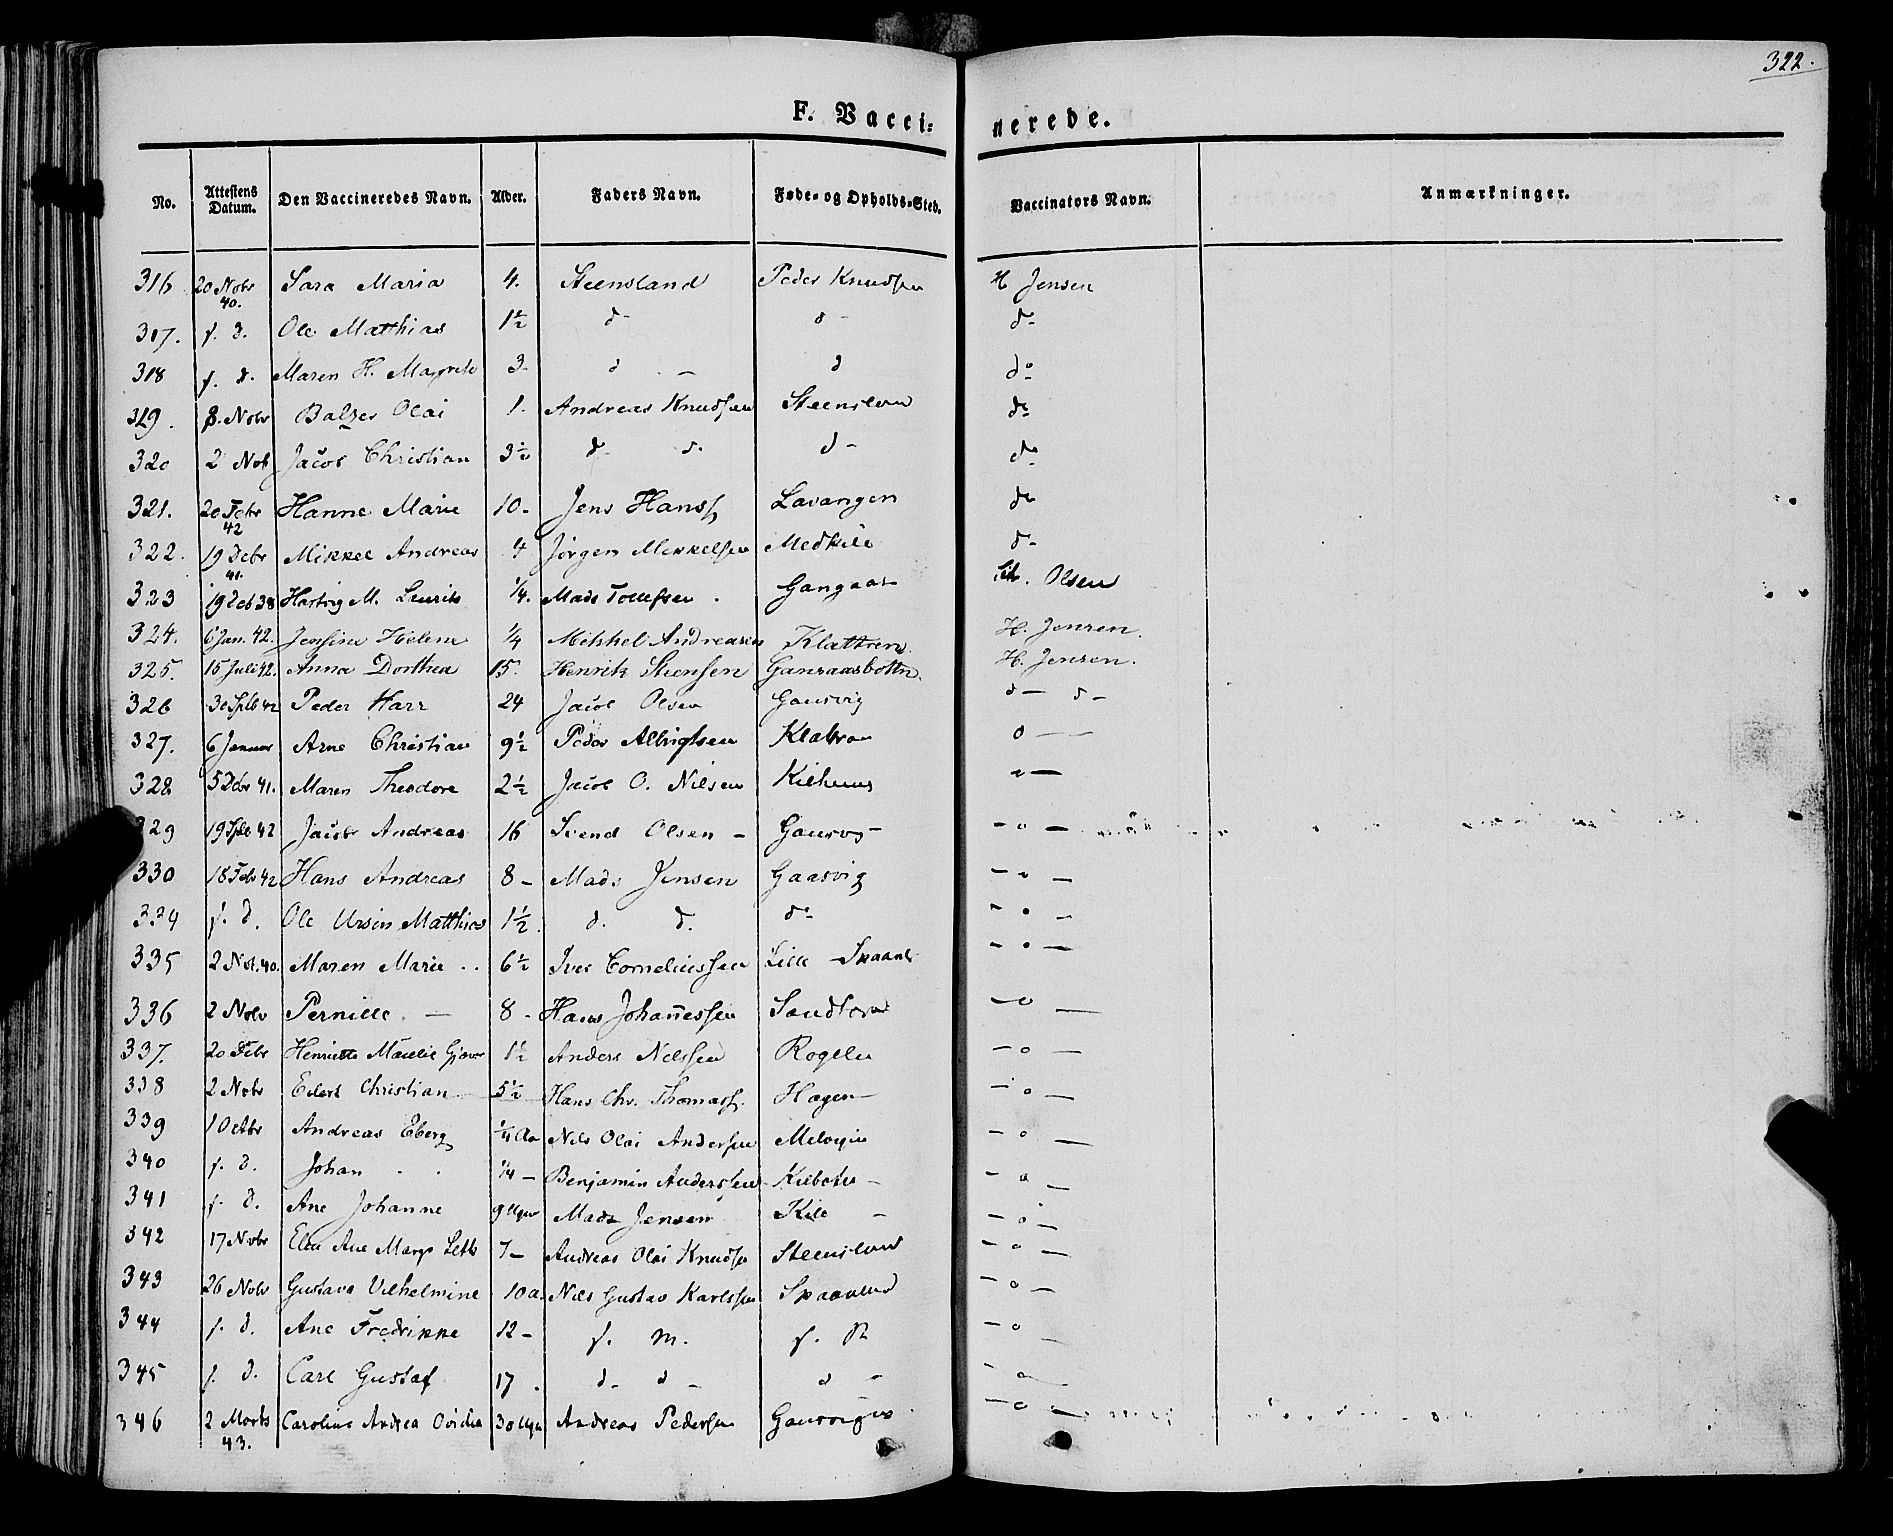 322.
F. Vacci= nerede.
No. Attestens Datum. Den Vaccineredes Navn. Alder. Faders Navn. Føde- og Opholds-Sted. Vaccinators Navn. Anmærkninger.
316 20 Nobr 40. Sara Maria 4. Steensland Peder Knudsen H Jensen
317. s. d. Ole Matthias 1½ d- d- do
318 s. d. Maren H. Magrete 3- d - d do
319. 8. Nobr Balzer Olai 1. Andreas Knudsen Steensland do
320 2 Nob Jacob Christian 3½ d- d. d- do
321. 20 Febr 42 Hanne Marie 10- Jens Hanss Lavangen do
322. 19 Debr 41. Mikkel Andreas 4 Jørgen Mikkelsen Medkile d-
323 19 38 Hartvig M. Lauritz ¼. Mads Tollefsen. Gangaas Olsen
324. 6 Jan. 42. Jensine Helene ¼ Mikkel Andreasen Klattren. H. Jensen.
325. 15 Juli 42. Anna Dorthea 15. Henrik Steensen Gansaasbottn. H. Jensen.
326 30 Sptb 42 Peder Harr 24 Jacob Olsen Gausvig d- d-
327. 6 Januar Arne Christian 9½ Peder Albrigtsen Klatran o -
328 5 Debr 41. Maren Theodore 2½ Jacob O. Nilsen Kilhuus o -
329 19 Sptb 42 Jacob Andreas 16 Svend Olsen - - o -
330 18 Feb 42 Hans Andreas 8- Mads Jensen Gaasvig - o -
334 s. d. Ole Ursin Matthias 1½. d. d. do - o -
335 2 Nob. 40. Maren Marie.. 6½ Iver Corneliussen Lille - - o -
336 2 Nobr Pernille. - 8- Hans Johannessen Sandtorv - o -
337. 20 Febr Henriette Gjæver 1½ Anders Nilssen Rogeln - o -
338 2 Nobr Edert Christian 5½ Hans Chr. Thomass. Hagen- - o -
339 10 Nils Olai Andersen - o -
Andreas Eberg
340 s. d. Johan.. ¼- Benjamin Anderssen Kilbotn- - o -
341 s. d. Ane Johanne 9 Uger Mads Jensen Kile - - o -
342 17 Nobr Ane 7- Andreas Olai Knudsen Steensland - o -
343 26 Nobr Gustava Vilhelmine 10 a. Nils Gustav Karlssen - o -
344 s. d. Ane Fredrikke 12- s. M. s. St - o -
345 s. d. Carl Gustaf 17. d- d- d- - o -
346 2 Marts 43. Caroline Andrea Ovidia 30 Uger Andreas Pedersen - o -